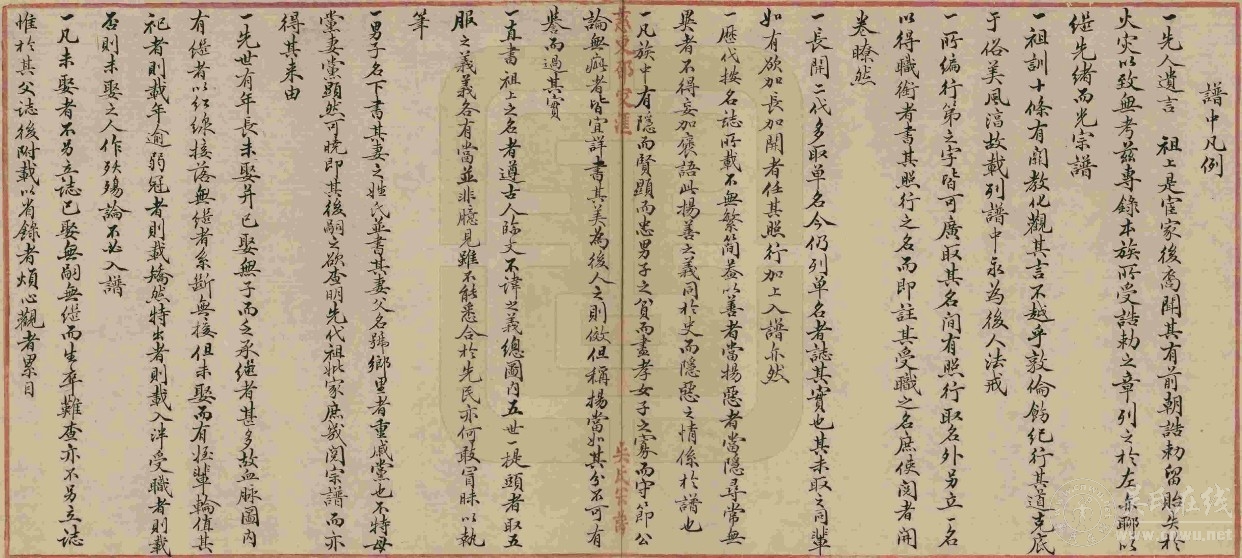 譜中凡例
一先人遺言　祖上是宦家後裔聞其有前朝誥勅留貽失於
火災以致無考茲專錄本族所受誥勅之章列之於左亦聊以
繼先緒而光宗譜
一祖訓十條有關教化觀其言不越乎敦倫飭紀行其道克底
于俗美風淳故載列譜中永為後人法戒
一所編行第之字皆可廣取其名間有照行取名外另立一名
以得職銜者書其照行之名而即註其受職之名庶使閱者開
卷瞭然
一長開二代多取單名今仍列單名者誌其實也其未取之同輩
如有欲加長加開者任其照行加上入譜亦然
一歷代按名誌所載不無繁簡蓋以善者當揚惡者當隱尋常無
異者不得妄加褒語此揚善之義同於史而隱惡之情係於譜也
一凡族中有隱而賢顯而忠男子之貧而盡孝女子之寡而守節公
論無疵者皆宜詳書其美為後人之則傚但稱揚當如其分不可有
譽而過其實
一直書祖上之名者遵古人臨文不諱之義總圖內五世一提頭者取五
服之義義各有當並非臆見雖不能悉合於先民亦何敢冒昧以執
筆
一男子名下書其妻之姓氏並書其妻父名號鄉里者重戚黨也不特母
黨妻黨顯然可曉即其後嗣之欲查明先代祖妣家庶幾閱宗譜而亦
得其来由
一先世有年長未娶并已娶無子而乏承繼者甚多故血脉圖內
有繼者以紅線接落無繼者系斷無接但未娶而有姪輩輪值其
祀者則載年逾弱冠者則載矯然特出者則載入泮受職者則載
否則未娶之人作殀殤論不必入譜
一凡未娶者不另立誌已娶無嗣無繼而生卒難查亦不另立誌
惟於其父誌後附載以省錄者煩心觀者累目
吳氏宗譜
吴氏在线